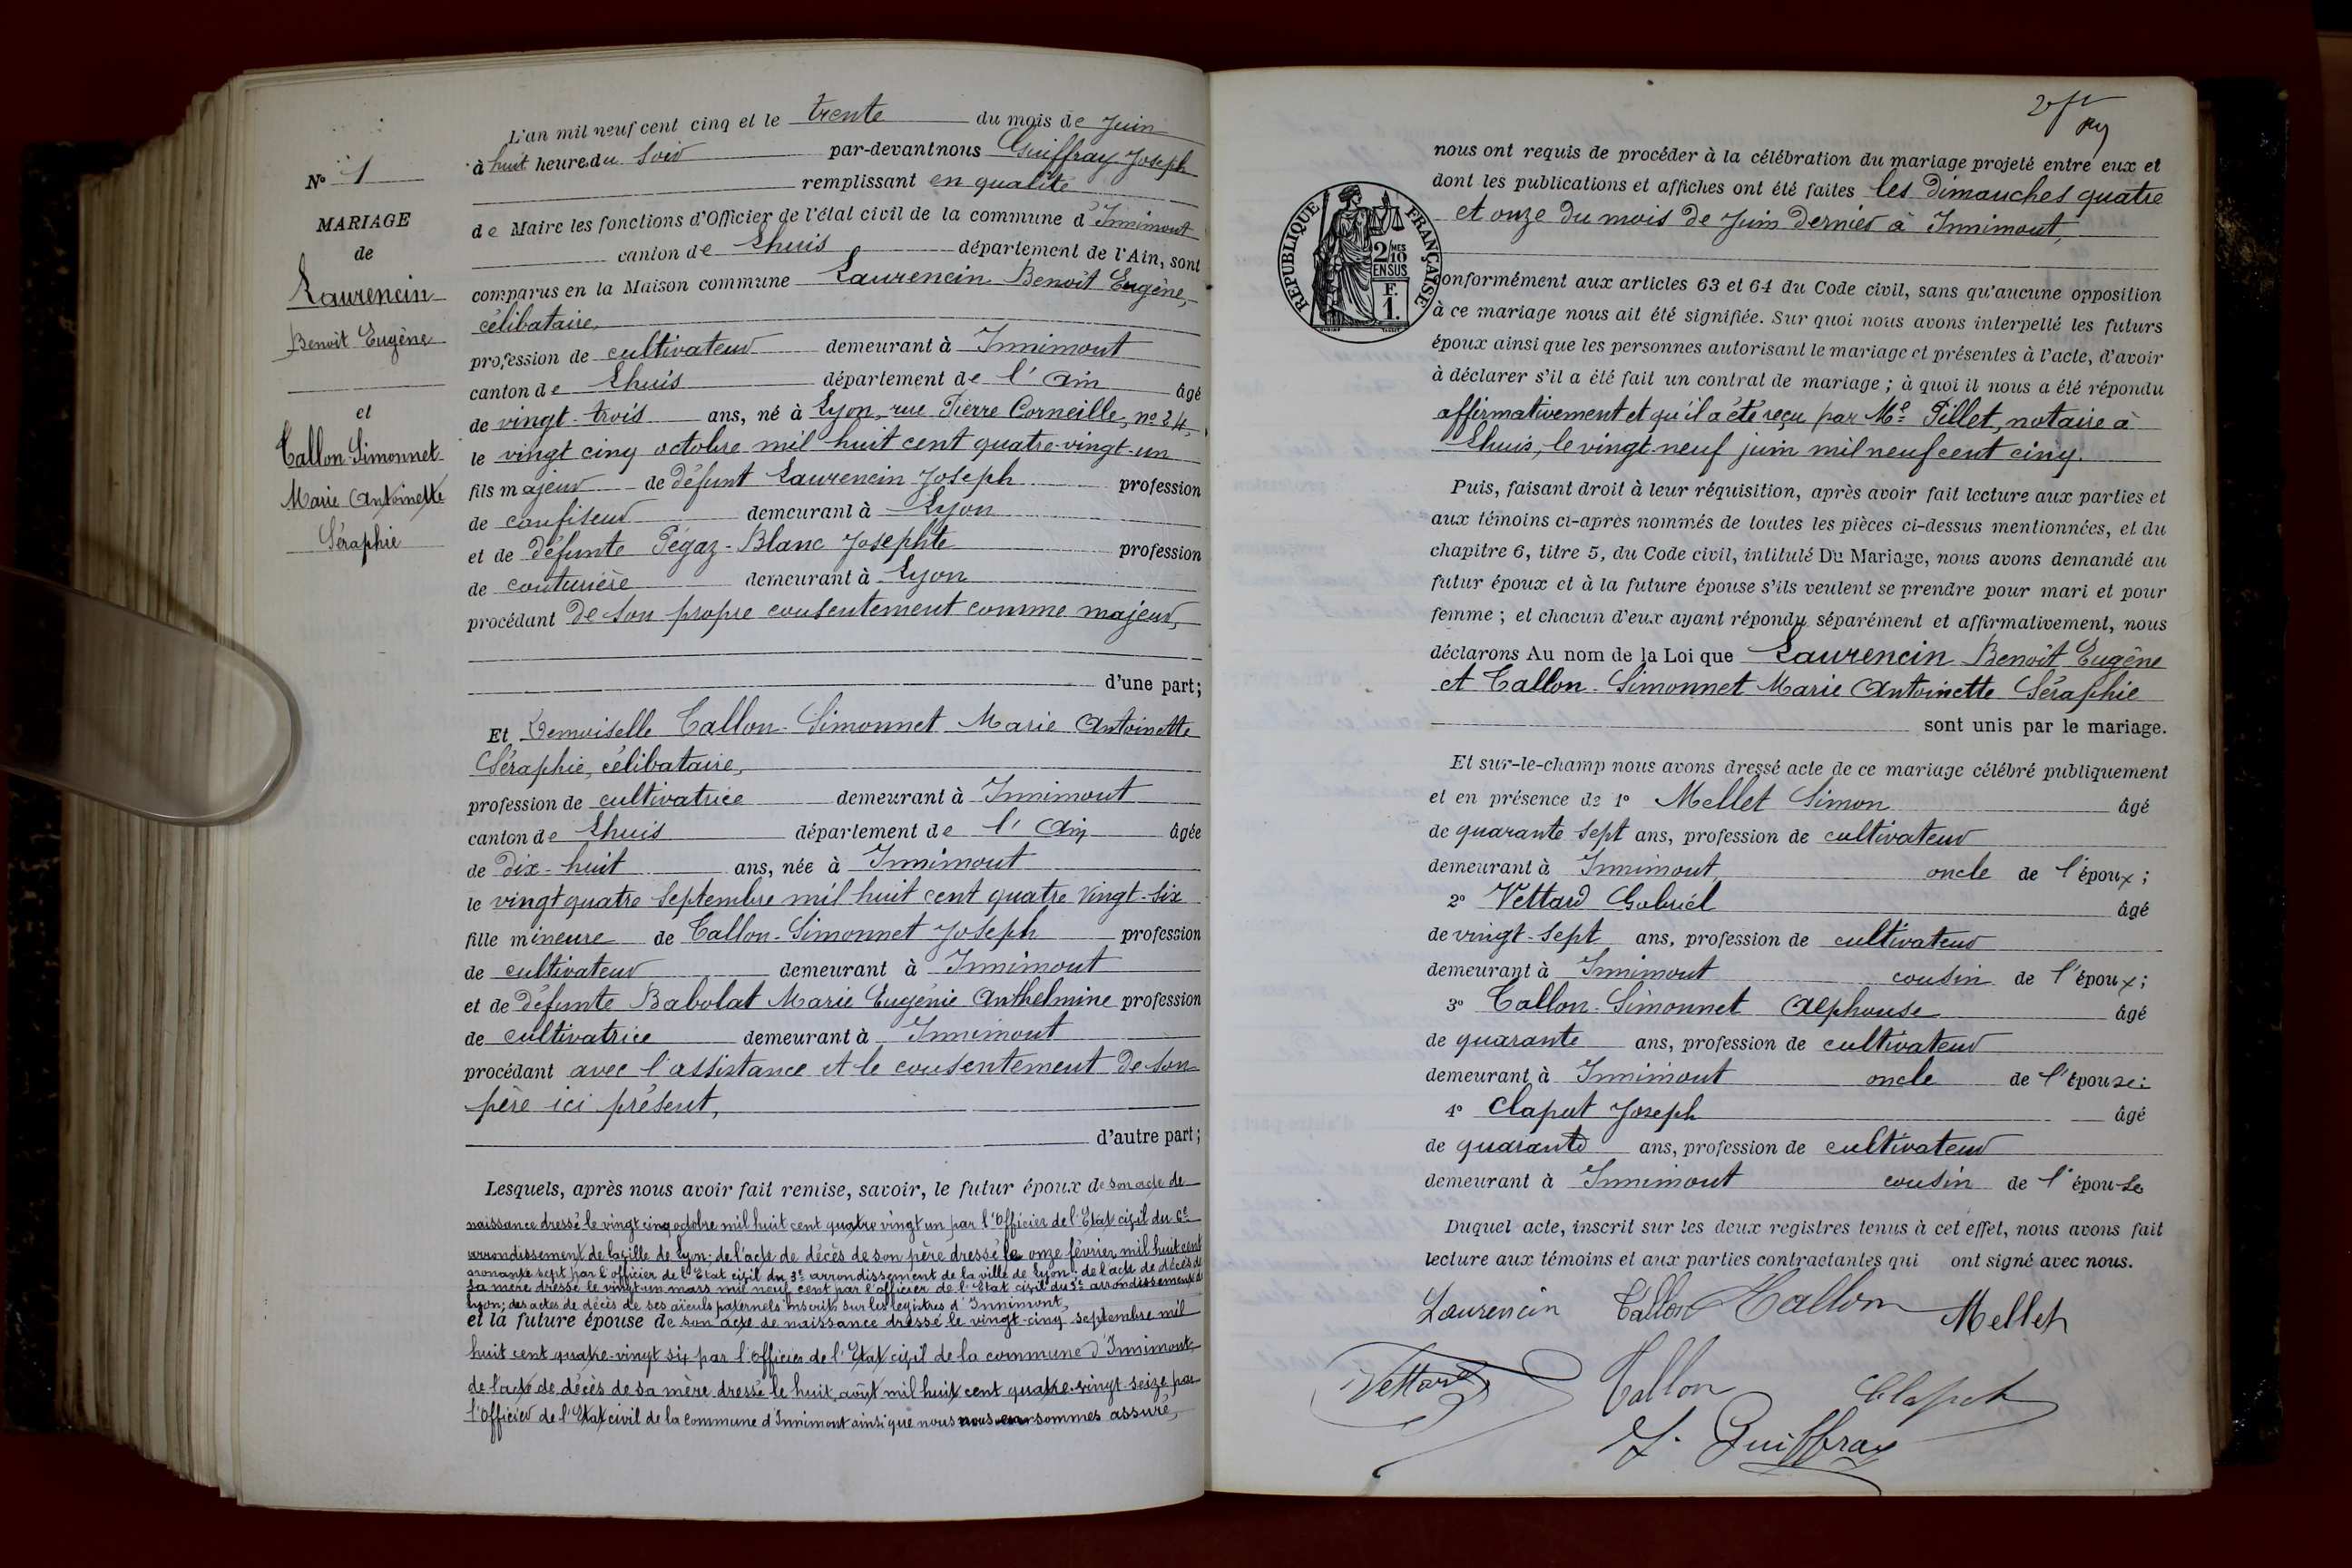 N° 1
MARIAGE
de
Laurencin
Benoît Eugène
et
Tallon-Simonnet
Marie Antoinette
Séraphie
L'an mil neuf cent cinq et le trente du mois de Juin
à huit heure du soir par-devant nous Guiffray Joseph
remplissant en qualité
de Maire les fonctions d'Officier de l'état civil de la commune d'Innimont
canton de Lhuis département de l'Ain, sont
comparus en la Maison commune Laurencin Benoît Eugène,
célibataire,
profession de cultivateur demeurant à Innimont
canton de Lhuis département de l'Ain âgé
de vingt-trois ans, né à Lyon, rue Pierre Corneille, n° 24,
le vingt cinq octobre mil huit cent quatre-vingt-un
fils majeur de défunt Laurencin Joseph profession
de confiseur demeurant à Lyon
et de défunte Pégaz-Blanc Josephte profession
de couturière demeurant à Lyon
procédant de son propre consentement comme majeur,
d'une part;
Et Demoiselle Tallon-Simonnet Marie Antoinette
Séraphie, célibataire,
profession de cultivatrice demeurant à Innimont
canton de Lhuis département de l'Ain âgée
de dix-huit ans, née à Innimont
le vingt quatre septembre mil huit cent quatre vingt-six
fille mineure de Tallon-Simonnet Joseph profession
de cultivateur demeurant à Innimont
et de défunte Babolat Marie Eugénie Anthelmine profession
de cultivatrice demeurant à Innimont
procédant avec l'assistance et le consentement de son
père ici présent,
d'autre part;
Lesquels, après nous avoir fait remise, savoir, le futur époux de son acte de
naissance dressé le vingt cinq octobre mil huit cent quatre vingt un par l'Officier de l'Etat civil du 6e
arrondissement de la ville de Lyon; de l'acte de décès de son père dressé le onze février mil huit cent
sept par l'officier de l'Etat civil du 3e arrondissement de la ville de Lyon; de l'acte de décès de
sa mère dressé le vingt un mars mil neuf cent par l'officier de l'Etat civil du 5e arrondissement de
Lyon; des actes de décès de ses aïeuls paternels inscrits sur les registres d'Innimont,
et la future épouse de son acte de naissance dressé le vingt-cinq septembre mil
huit cent quatre-vingt six par l'Officier de l'Etat civil de la commune d'Innimont,
de l'acte de décès de sa mère dressé le huit août mil huit cent quatre-vingt-seize par
l'Officier de l'Etat civil de la commune d'Innimont ainsi que nous nous en sommes assuré,
nous ont requis de procéder à la célébration du mariage projeté entre eux et
dont les publications et affiches ont été faites les dimanches quatre
et onze du mois de Juin dernier à Innimont,
REPUBLIQUE FRANÇAISE
2/10 MES
EN SUS
F.
1.
conformément aux articles 63 et 64 du Code civil, sans qu'aucune opposition
à ce mariage nous ait été signifiée. Sur quoi nous avons interpellé les futurs
époux ainsi que les personnes autorisant le mariage et présentes à l'acte, d'avoir
à déclarer s'il a été fait un contrat de mariage; à quoi il nous a été répondu
affirmativement et qu'il a été reçu par Me Pillet, notaire à
Lhuis, le vingt-neuf juin mil neuf cent cinq.
Puis, faisant droit à leur réquisition, après avoir fait lecture aux parties et
aux témoins ci-après nommés de toutes les pièces ci-dessus mentionnées, et du
chapitre 6, titre 5, du Code civil, intitulé Du Mariage, nous avons demandé au
futur époux et à la future épouse s'ils veulent se prendre pour mari et pour
femme; et chacun d'eux ayant répondu séparément et affirmativement, nous
déclarons Au nom de la Loi que Laurencin Benoît Eugène
et Tallon-Simonnet Marie Antoinette Séraphie
sont unis par le mariage.
Et sur-le-champ nous avons dressé acte de ce mariage célébré publiquement
et en présence de 1° Mellet Simon âgé
de quarante sept ans, profession de cultivateur
demeurant à Innimont, oncle de l'époux;
2° Vettard Gabriel âgé
de vingt-sept ans, profession de cultivateur
demeurant à Innimont cousin de l'époux;
3° Tallon-Simonnet Alphonse âgé
de quarante ans, profession de cultivateur
demeurant à Innimont oncle de l'épouse;
4° Clapot Joseph âgé
de quarante ans, profession de cultivateur
demeurant à Innimont cousin de l'épouse
Duquel acte, inscrit sur les deux registres tenus à cet effet, nous avons fait
lecture aux témoins et aux parties contractantes qui ont signé avec nous.
Laurencin Tallon Tallon Mellet
Vettard Tallon Clapot
J. Guiffray